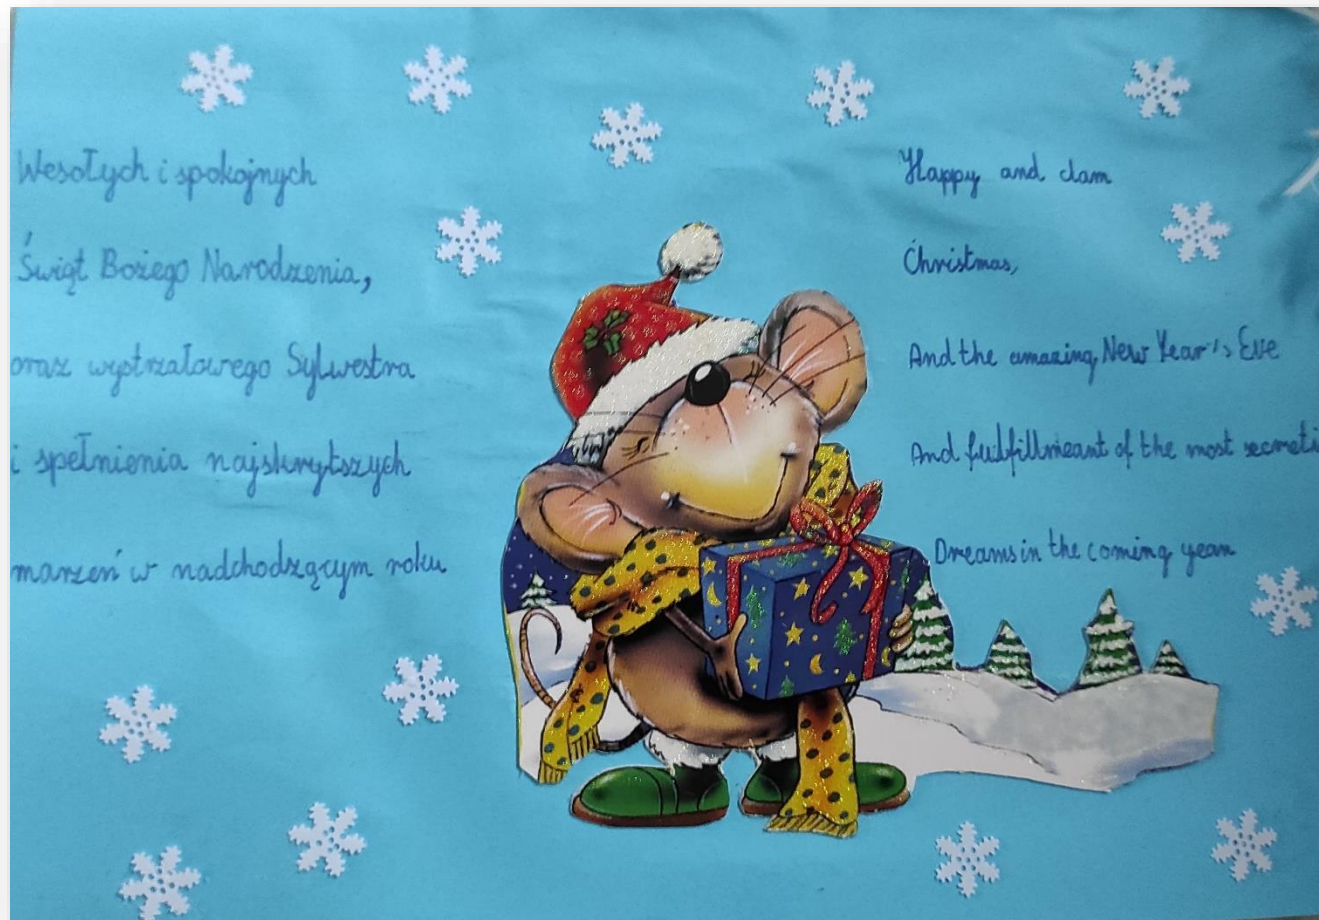 Wesołych i spokojnych
Świąt Bożego Narodzenia,
oraz wystrzałowego Sylwestra
i spełnienia najskrytszych
marzeń w nadchodzącym roku
Happy and clam
Christmas,
And the amazing New Year's Eve
And fulfillmeant of the most
Dreams in the coming year